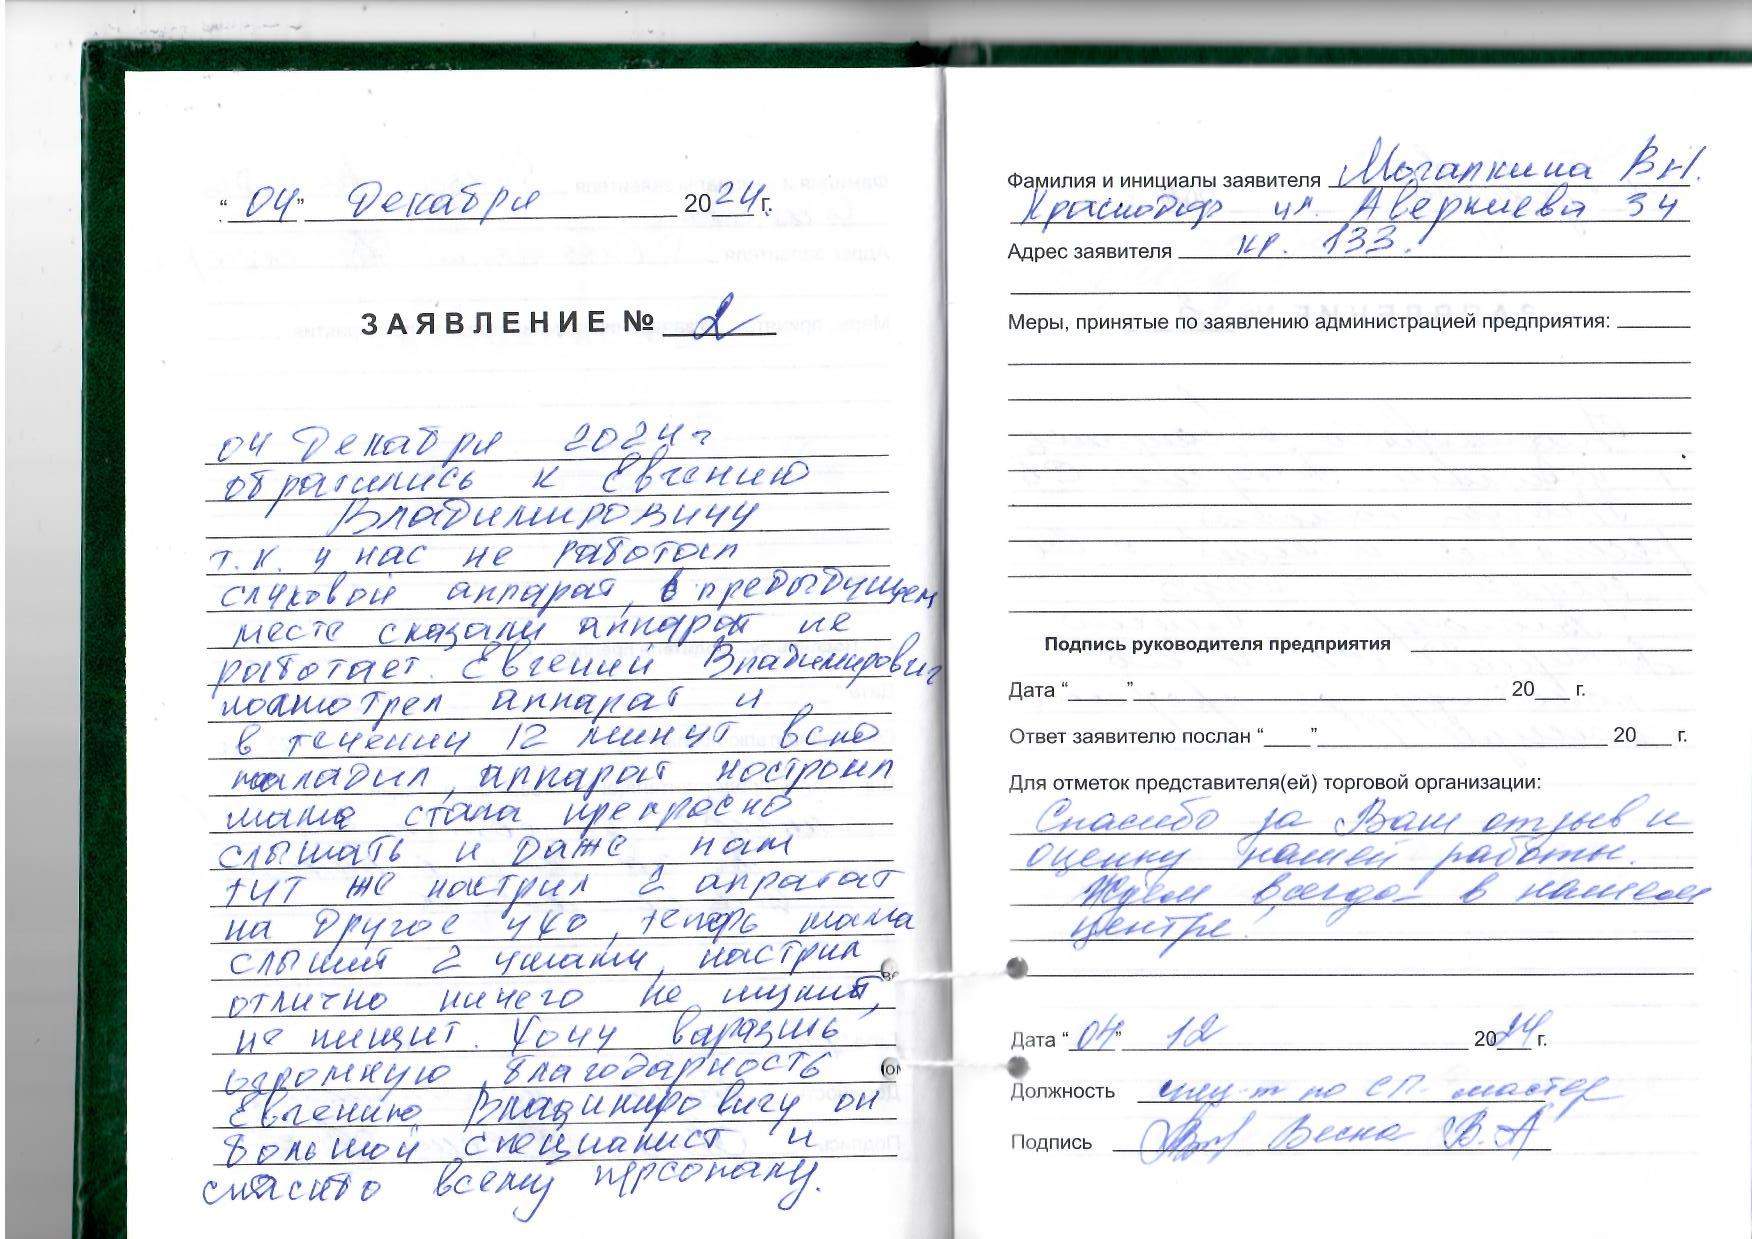 “04” Декабря 2024 г.
ЗАЯВЛЕНИЕ № 2
04 Декабря 2024 г
обратились к Евгению
Владимировичу
т.к. у нас не работал
слуховой аппарат, в предыдущем
месте сказали аппарат не
работает. Евгений Владимирович
посмотрел аппарат и
в течении 12 минут всио
наладил, аппарат настроил
мама стала прекрасно
слышать и даже нам
тут же настрил 2 апратат
на другое ухо, теперь мама
слышит 2 ушами, настрил
отлично ничего не шумит,
не пищит. Хочу варазить
огромную благодарность
Евгению Владимировичу он
большой специалист и
спасибо всему персоналу.
Фамилия и инициалы заявителя Могапкина В.Н.
Краснодар ул. Аверкиева 34
Адрес заявителя кв. 133.
Меры, принятые по заявлению администрацией предприятия:
Подпись руководителя предприятия
Дата “ ” 20 г.
Ответ заявителю послан “ ” 20 г.
Для отметок представителя(ей) торговой организации:
Спасибо за Ваш отзыв и
оценку нашей работы.
Ждем всегда в нашем
центре!
Дата “04” 12 2024 г.
Должность спец-т по СП. мастер
Подпись Весна В.А